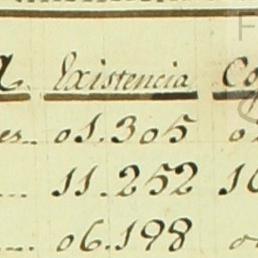 a Existencia Co
es.. 01.305 0
... 11.252 10
.... 06.198 0